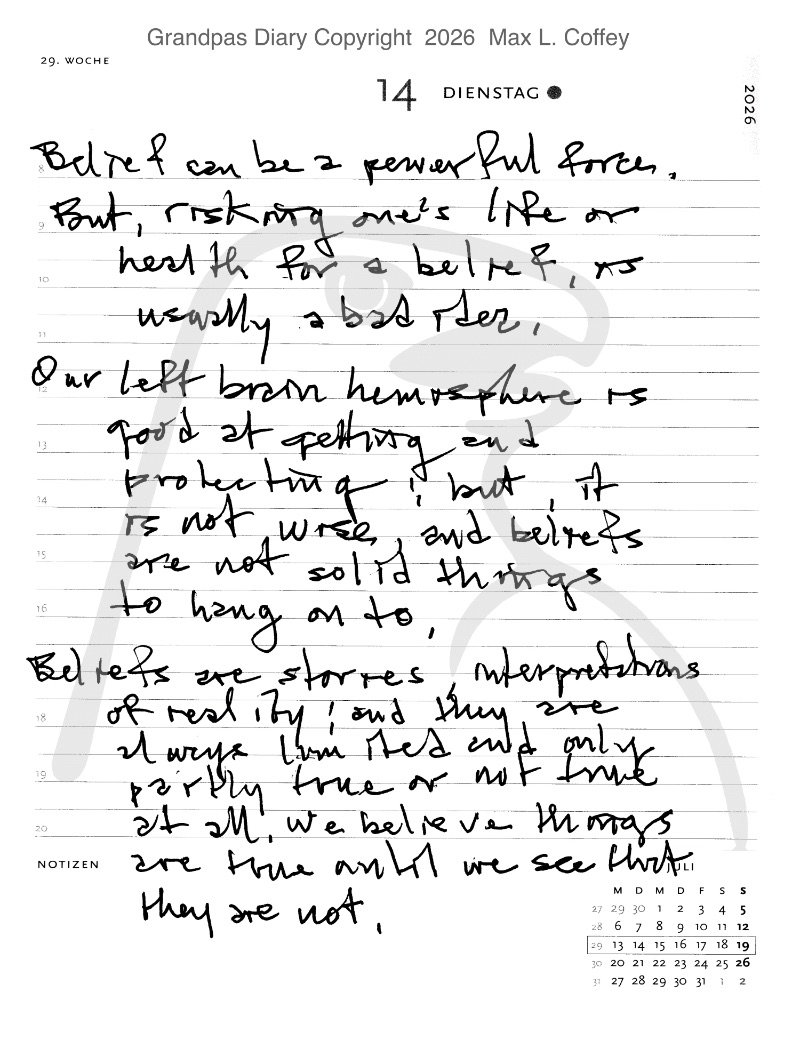 Grandpas Diary Copyright 2026 Max L. Coffey
29. WOCHE
14 DIENSTAG
2026
8
Belief can be a powerful force.
9
But, risking one's life or
health for a belief, is
10
usually a bad idea.
11
Our left brain hemisphere is
12
good at getting and
13
protecting; but, it
14
is not wise, and beliefs
15
are not solid things
16
to hang on to.
Beliefs are stories, interpretations
18
of reality; and they are
always limited and only
19
partly true or not true
20
at all. We believe things
NOTIZEN
are true until we see that
they are not.
JULI
M D M D F S S
27 29 30 1 2 3 4 5
28 6 7 8 9 10 11 12
29 13 14 15 16 17 18 19
30 20 21 22 23 24 25 26
31 27 28 29 30 31 1 2